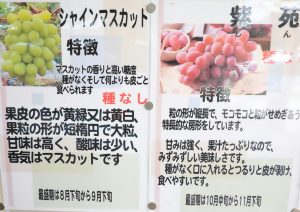 シャインマスカット
特徴
マスカットの香りと高い糖度
種がなくそして何よりも皮ごと
食べられます
種なし
果皮の色が黄緑又は黄白、
果粒の形が短楕円で大粒、
甘味は高く、酸味は少い、
香気はマスカットです
最盛期は8月下旬から9月下旬
紫苑
特徴
粒の形が縦長で、モコモコと粒がせめぎあう
特長的な房形をしています。
甘みは強く、果汁たっぷりなので、
みずみずしい美味しさです。
種がなく口に入れるとつるりと皮が剥け、
食べやすいです。
最盛期は10月中旬から11月下旬